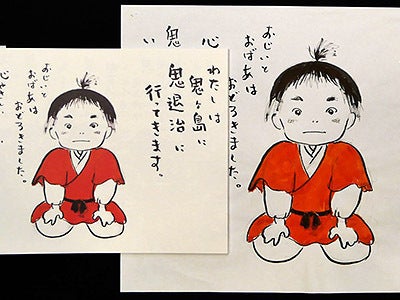 おじいと
おばあは
おどろきました。
心
鬼
い
わたしは
鬼ヶ島に
鬼退治に
行ってきます。
おじいと
おばあは
おどろきました。